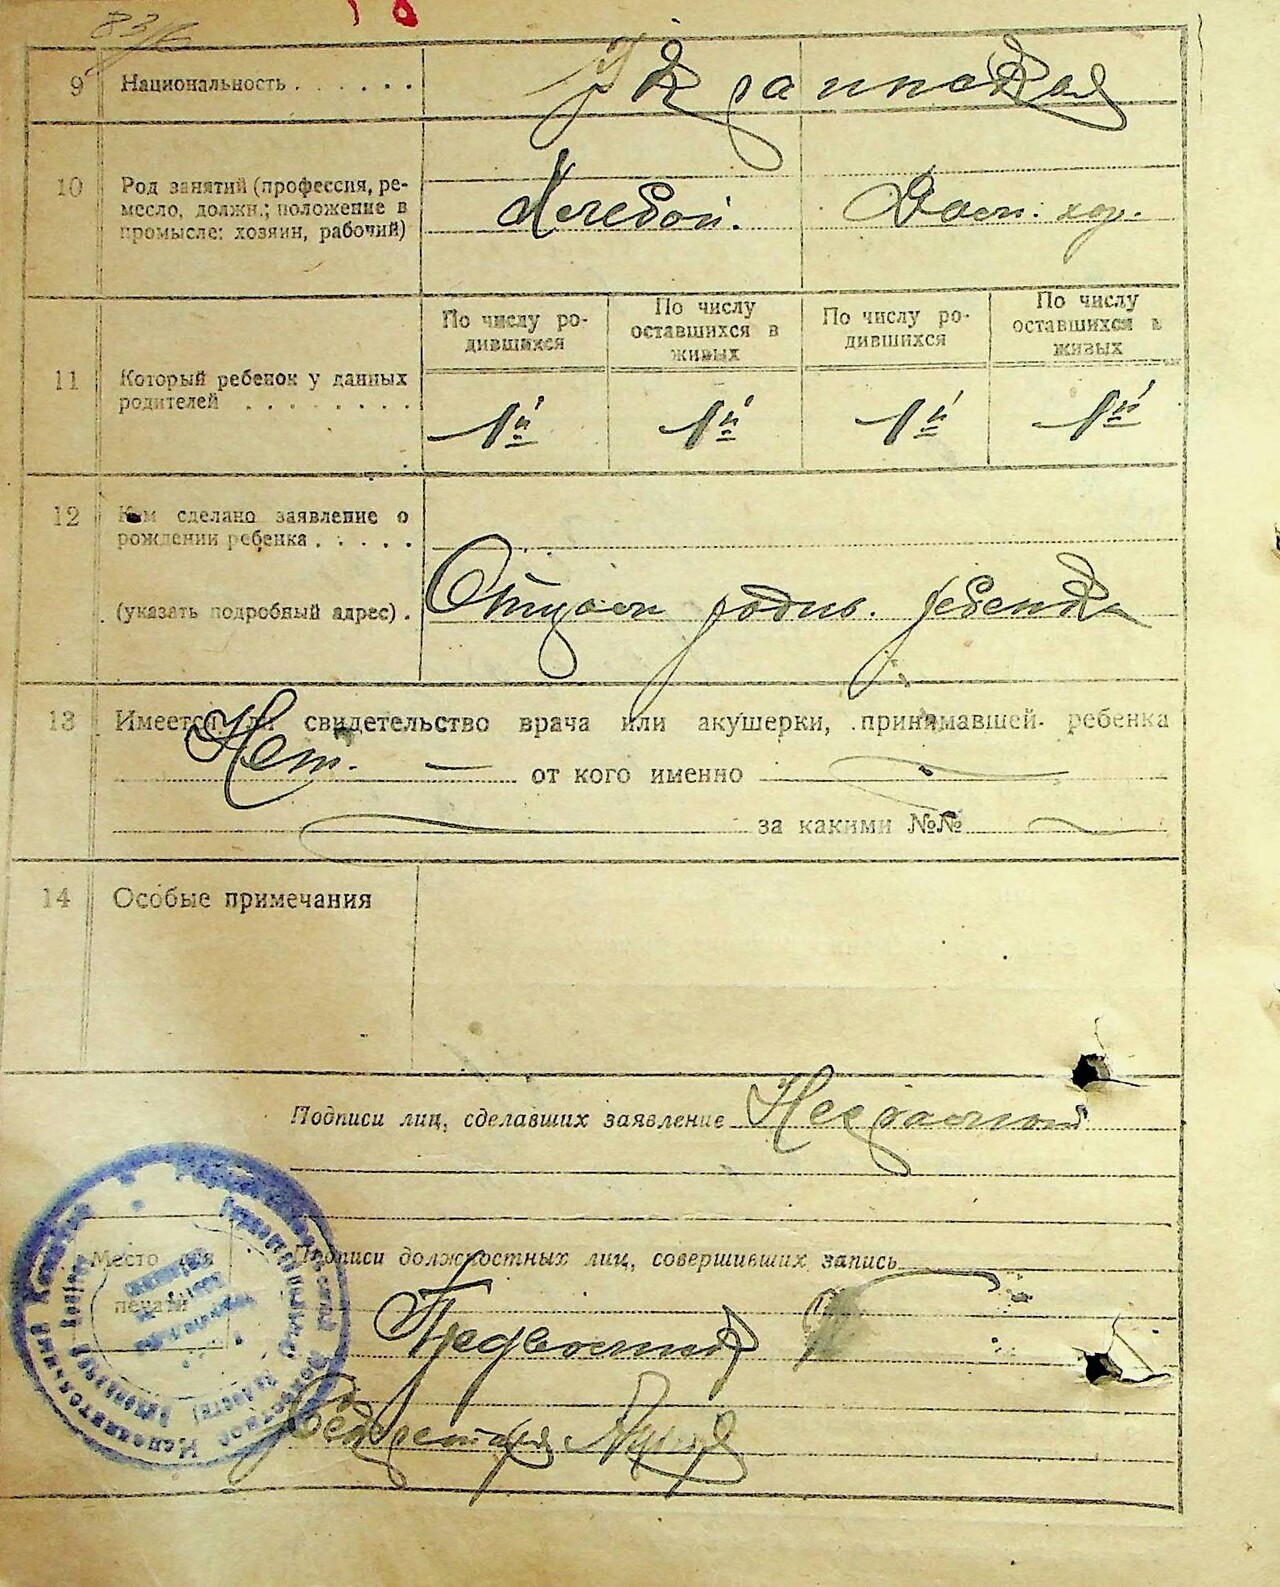 9 Национальность . . . . . . Украинская
10 Род занятий (профессия, ре-
месло, должн.; положение в
промысле: хозяин, рабочий)
Хлебоп. Дом. хоз.
По числу ро-
дившихся
По числу
оставшихся в
живых
По числу ро-
дившихся
По числу
оставшихся в
живых
11 Который ребенок у данных
родителей . . . . . . . .
1й 1й 1й 1й
12 Кем сделано заявление о
рождении ребенка . . . . .
(указать подробный адрес) . Отцом родив. ребенка
13 Имеется ли свидетельство врача или акушерки, принимавшей ребенка
Нет. — от кого именно
за какими №№
14 Особые примечания
Подписи лиц, сделавших заявление
Место для
печати
Подписи должностных лиц, совершивших запись
Секретарь